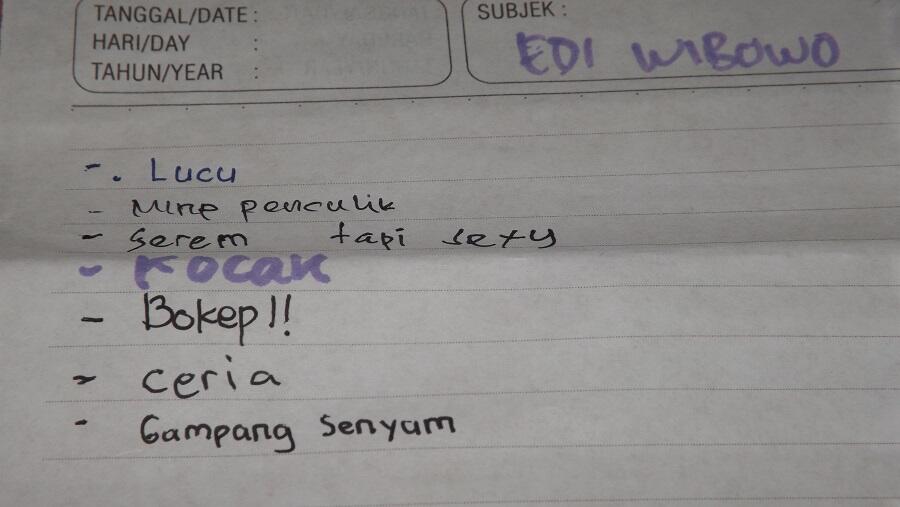 TANGGAL/DATE :
HARI/DAY :
TAHUN/YEAR :
SUBJEK :
EDI WIBOWO
-. Lucu
- Mirip penculik
- serem tapi sexy
- Kocak
- Bokep!!
- Ceria
- Gampang senyum